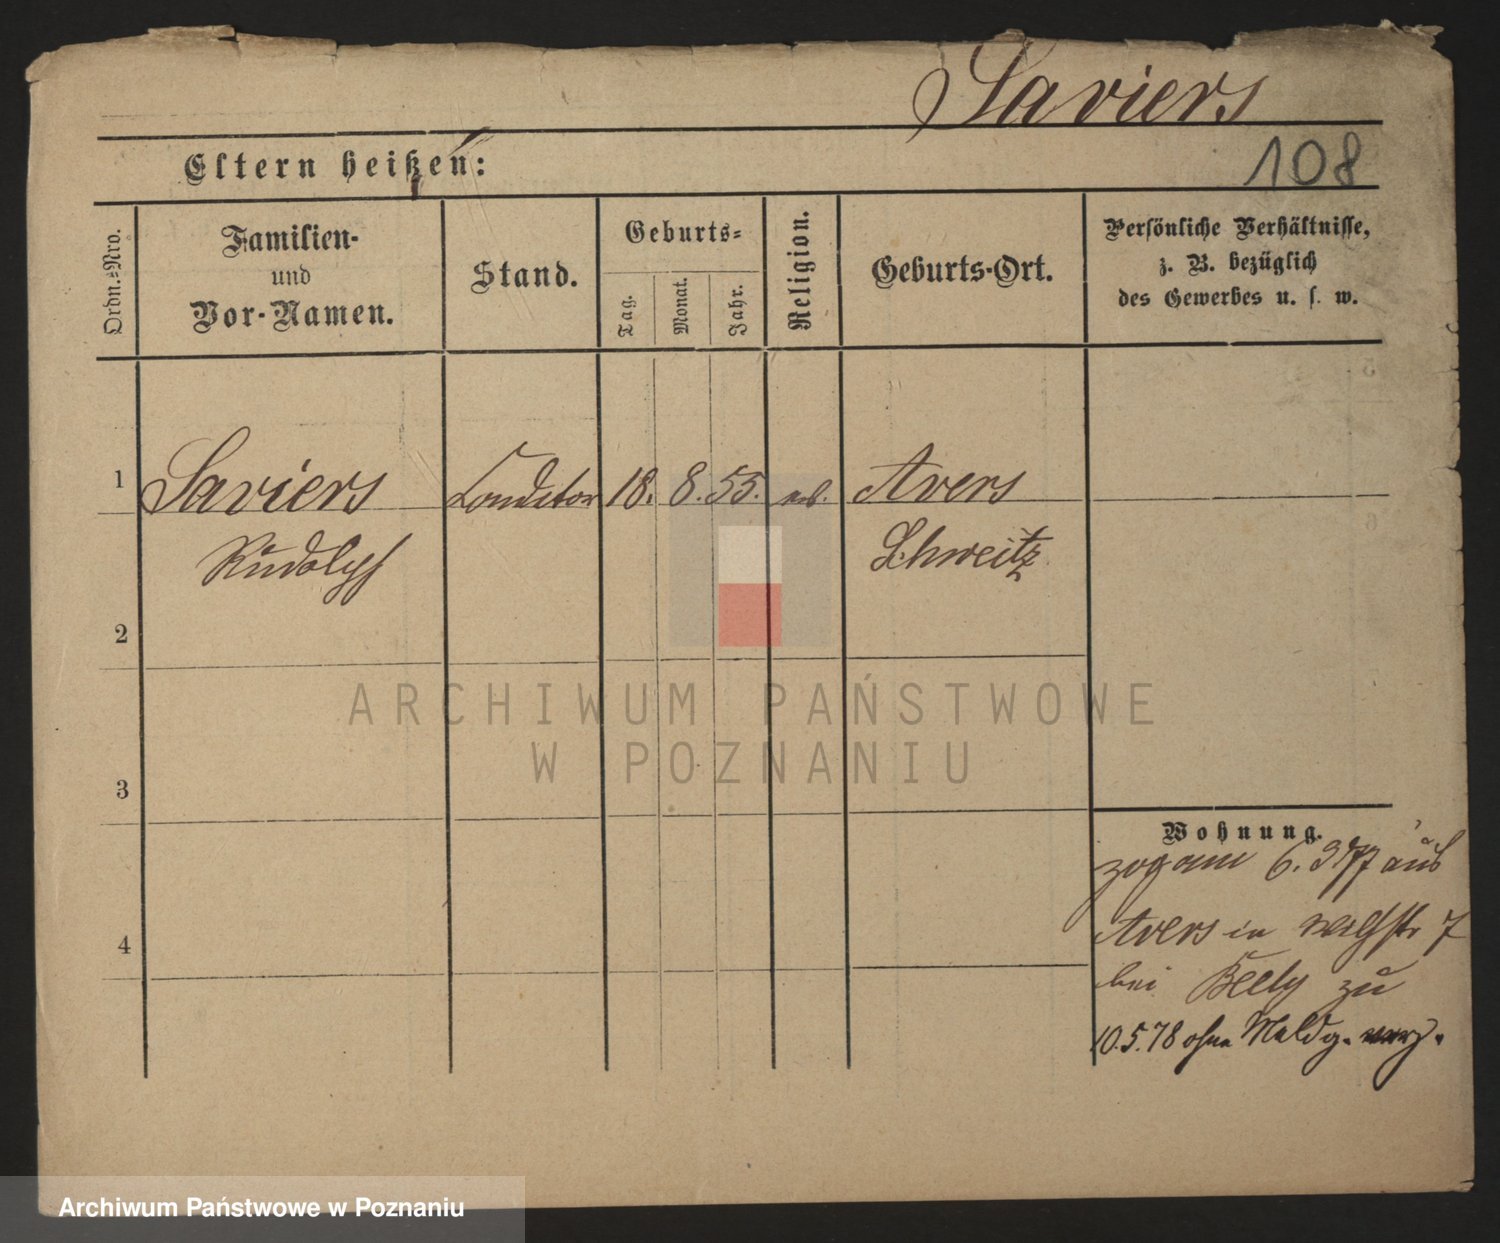 Saviers
108
Eltern heißen:
Ordn.-Nro.
Familien-
und
Vor-Namen.
Stand.
Geburts-
Tag.
Monat.
Jahr.
Religion.
Geburts-Ort.
Persönliche Verhältnisse,
z. B. bezüglich
des Gewerbes u. s. w.
1 Saviers Conditor 18. 8. 55. Avers
Rudolph Schweitz
2
3
4
ARCHIWUM PAŃSTWOWE
W POZNANIU
Wohnung.
zog am 6. 3 77 aus
Avers in 7
bei Beely zu
10.5.78 ohne Meldg. verz.
Archiwum Państwowe w Poznaniu